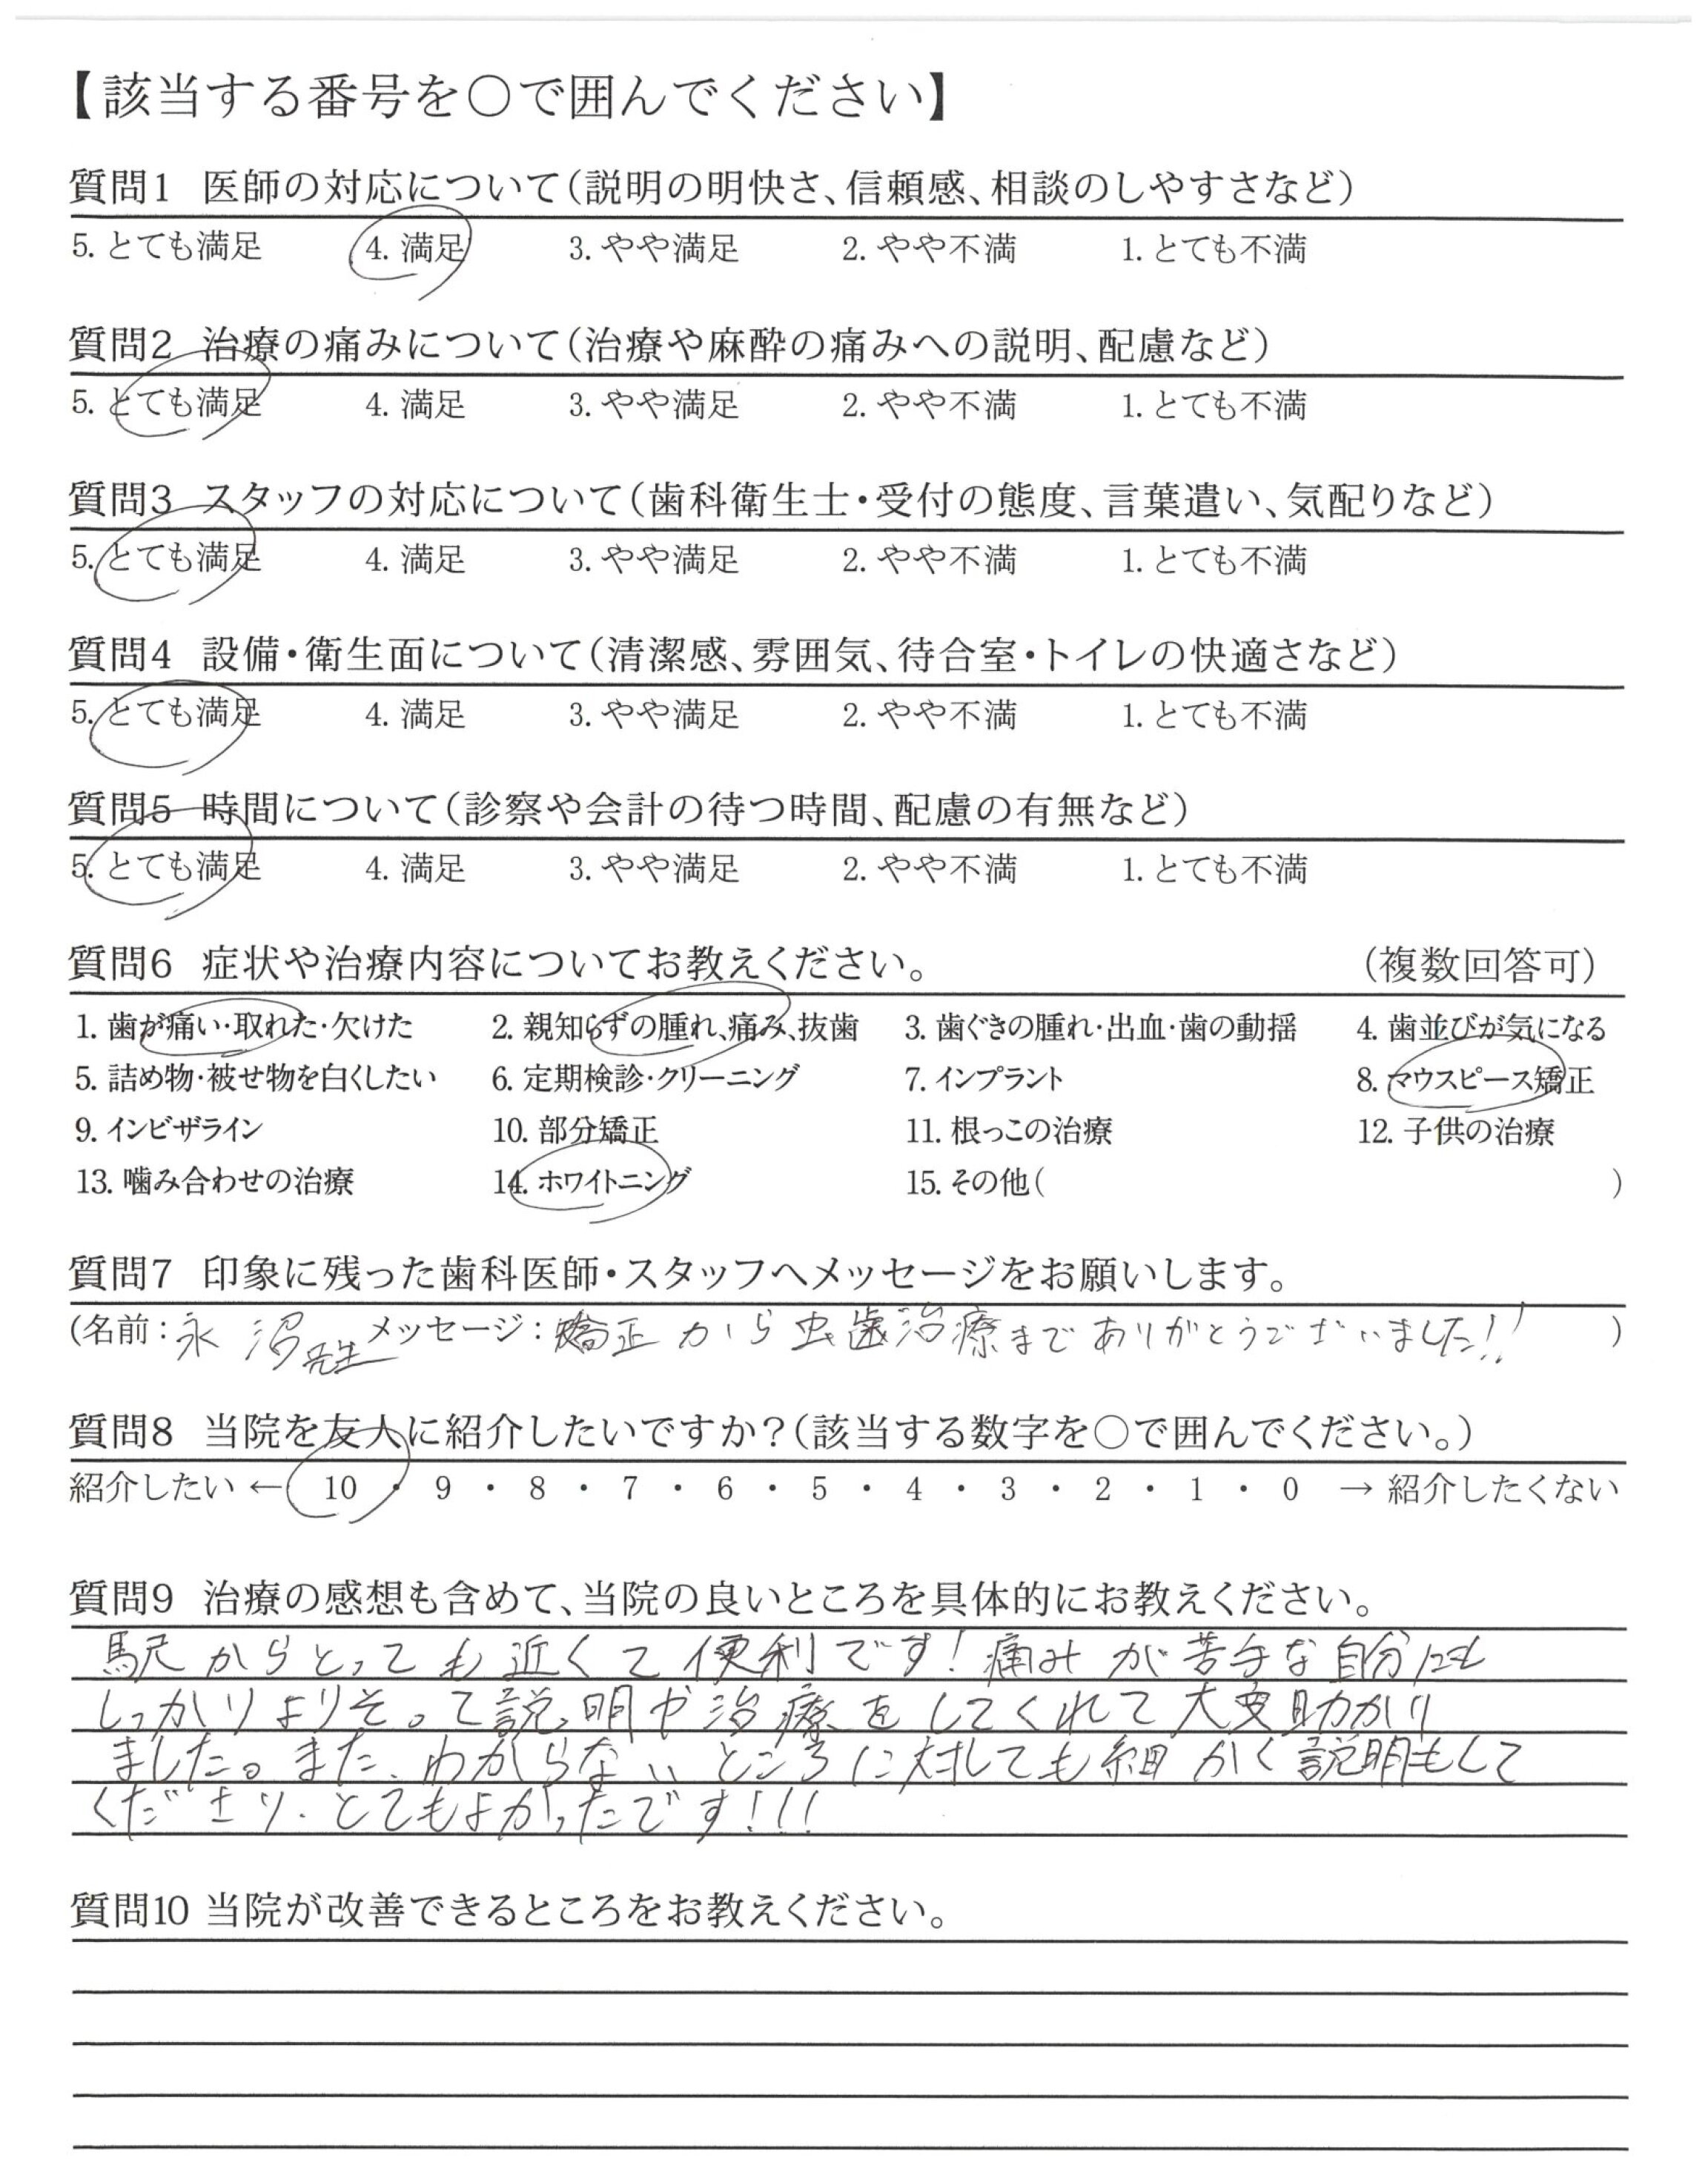 【該当する番号を○で囲んでください】
質問1 医師の対応について(説明の明快さ、信頼感、相談のしやすさなど)
5. とても満足 4. 満足 3. やや満足 2. やや不満 1. とても不満
質問2 治療の痛みについて(治療や麻酔の痛みへの説明、配慮など)
5. とても満足 4. 満足 3. やや満足 2. やや不満 1. とても不満
質問3 スタッフの対応について(歯科衛生士・受付の態度、言葉遣い、気配りなど)
5. とても満足 4. 満足 3. やや満足 2. やや不満 1. とても不満
質問4 設備・衛生面について(清潔感、雰囲気、待合室・トイレの快適さなど)
5. とても満足 4. 満足 3. やや満足 2. やや不満 1. とても不満
質問5 時間について(診察や会計の待つ時間、配慮の有無など)
5. とても満足 4. 満足 3. やや満足 2. やや不満 1. とても不満
質問6 症状や治療内容についてお教えください。 (複数回答可)
1. 歯が痛い・取れた・欠けた 2. 親知らずの腫れ、痛み、抜歯 3. 歯ぐきの腫れ・出血・歯の動揺 4. 歯並びが気になる
5. 詰め物・被せ物を白くしたい 6. 定期検診・クリーニング 7. インプラント 8. マウスピース矯正
9. インビザライン 10. 部分矯正 11. 根っこの治療 12. 子供の治療
13. 噛み合わせの治療 14. ホワイトニング 15. その他( )
質問7 印象に残った歯科医師・スタッフへメッセージをお願いします。
(名前：永沼先生 メッセージ：矯正から虫歯治療までありがとうございました!! )
質問8 当院を友人に紹介したいですか？(該当する数字を○で囲んでください。)
紹介したい ← 10 ・ 9 ・ 8 ・ 7 ・ 6 ・ 5 ・ 4 ・ 3 ・ 2 ・ 1 ・ 0 → 紹介したくない
質問9 治療の感想も含めて、当院の良いところを具体的にお教えください。
駅からとっても近くて便利です!痛みが苦手な自分にも
しっかりよりそって説明や治療をしてくれて大変助かり
ました。また、わからないところに対しても細かく説明もして
くださり、とてもよかったです!!!
質問10 当院が改善できるところをお教えください。